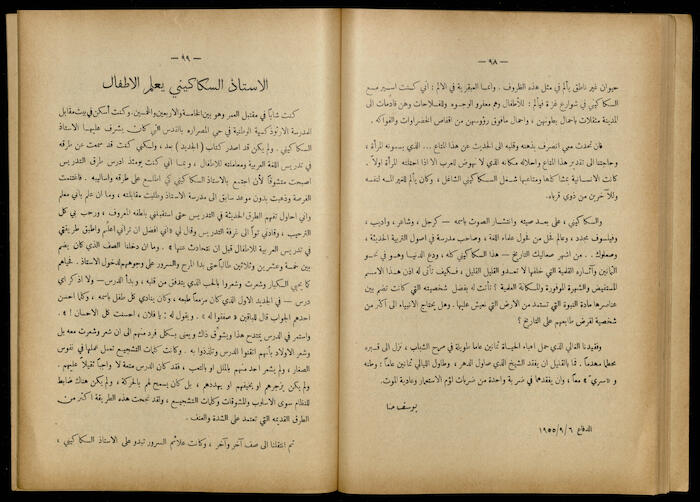 — ٩٨ —
حيوان غير ناطق يألم في مثل هذه الظروف. وانما العبقرية في الالم: اني كنت اسير مع
السكاكيني في شوارع غزة فيألم: للأطفال وهم معفرو الوجوه وللفلاحات وهن قادمات الى
المدينة مثقلات باحمال بطونهن، واحمال مافوق رؤوسهن من اقفاص الخضراوات والفواكه.
فان حدثت معي انصرف بذهنه وقلبه الى الحديث عن هذا المتاع ... الذي يسمونه المرأة،
وحاجتنا الى تقدير هذا المتاع واحلاله مكانه الذي لا نهوض للعرب الا اذا احتلته المرأة اولاً.
كانت الانسانية بمشاكلها ومتاعبها شغل السكاكيني الشاغل، وكان يألم للغير المه لنفسه
وللآخرين من ذوي قرباه.
والسكاكيني، على بعد صيته وانتشار الصوت باسمه – كرجل، وشاعر، واديب،
وفيلسوف مجدد، وعالم فحل من فحول علماء اللغة، وصاحب مدرسة في اصول التربية الحديثة،
وصعلوك.. من اشهر صعاليك التاريخ – هذا السكاكيني كله، ودع الدنيا وهو في نحو
الثمانين وآثاره القلمية التي خلفها لا تعدو القليل القليل، فكيف تأتى له اذن هذا الاسم
المستفيض والشهرة الموفورة والمكانة العلمية؟ أتأتت له بفضل شخصيته التي كانت تضم بين
عناصرها مادة النبوة التي تستمد من الارض التي نعيش عليها. وهل يحتاج الانبياء الى اكثر من
شخصية لفرض طابعهم على التاريخ؟
وفقيدنا الغالي الذي حمل اعباء الحياة ثمانين عاماً طويلة في مرح الشباب، نزل الى قبره
محطماً مهدماً. فما بالقليل ان يفقد الشيخ الذي صاول الدهر، وطاول الليالي ثمانين عاماً: وطنه
و «سري» معاً، وان يفقدهما في ضربة واحدة من ضربات لؤم الاستعمار وعادية الموت.
يوسف حنا
الدفاع ٦/٩/١٩٥٥
— ٩٩ —
الاستاذ السكاكيني يعلم الاطفال
كنت شاباً في مقتبل العمر وهو بين الخامسة والاربعين والخمسين. وكنت أسكن في بيت مقابل
المدرسة الارثوذكسية الوطنية في حي المصراره بالقدس التي كان يشرف عليها الاستاذ
السكاكيني. ولم يكن قد اصدر كتاب (الجديد) بعد، ولكني كنت قد سمعت عن طرقه
في تدريس اللغة العربية ومعاملته للاطفال، وبما اني كنت يومئذ ادرس طرق التدريس
اصبحت متشوقاً لأن اجتمع بالاستاذ السكاكيني كي اطلع على طرقه واساليبه. فاغتنمت
الفرصة وذهبت بدون موعد سابق الى مدرسة الاستاذ وطلبت مقابلته، وما ان علم باني معلم
واني احاول تفهم الطرق الحديثة في التدريس حتى استقبلني بلطفه المعروف، ورحب بي كل
الترحيب، وقادني توًا الى غرفة التدريس وقال لي «اني افضل ان تراني اعلّم واطبق طريقتي
في تدريس العربية للاطفال قبل ان نتحادث عنها». وما ان دخلنا الصف الذي كان يضم
بين خمسة وعشرين وثلاثين طالباً حتى بدا المرح والسرور على وجوههم لدخول الاستاذ. فحياهم
كما يحيي الكبار وشعرت وشعروا بالحب الذي يتدفق من قلبه، وبدأ الدرس – ولا اذكر اي
درس – في الجديد الاول الذي كان مزمعاً طبعه، وكان ينادي كل طفل باسمه، وكلما احسن
احدهم الجواب قال للباقين «صفقوا له». ويقول له: يا فلان، احسنت كل الاحسان! »
واستمر في الدرس يمتدح هذا ويشوّق ذاك ويعنى بكل فرد منهم الى ان شعر وشعرت معه بل
وشعر الاولاد بأنهم اتقنوا الدرس وتلذذوا به. وكانت كلمات التشجيع تعمل عملها في نفوس
الصغار، ولم يشعر احد منهم بالملل او بالتعب، فقد كان الدرس متعة لا واجباً ثقيلاً عليهم.
ولم يكن يزجرهم او يخيفهم او يهددهم، بل كان يسمح لهم بالحركة، ولم يكن هناك ضابط
للنظام سوى الاسلوب والمشوقات وكلمات التشجيع، ولقد نجحت هذه الطريقة اكثر من
الطرق القديمه التي تعتمد على الشدة والعنف.
ثم انتقلنا الى صف آخر وآخر، وكانت علائم السرور تبدو على الاستاذ السكاكيني،